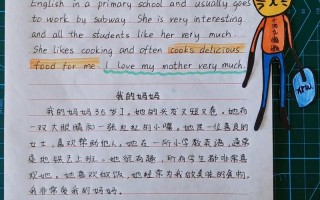 English in a primary school and usually goes
to work by subway. She is very interesting
and all the students like her very much.
She likes cooking and often cooks delicious
food for me. I love my mother very much.
我的妈妈
我的妈妈36岁了,她的头发又短又卷,她有
一双大眼睛和一张红红的小嘴。她是一位善良的
女士,喜欢帮助他人。她在一所小学教英语,通常
乘地铁去上班。她很有趣,所有学生都非常喜
欢她。她喜欢做饭,她经常为我做美味的食物。
我非常爱我的妈妈。